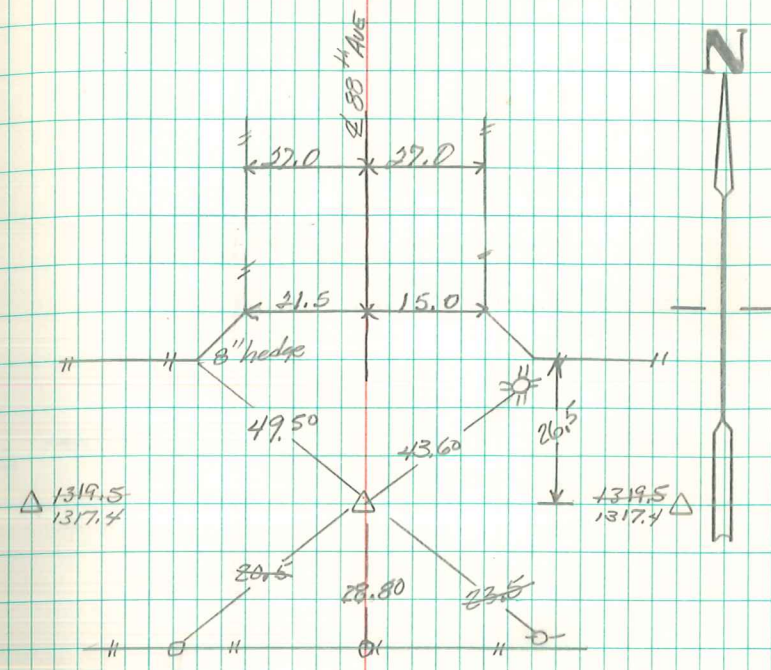 ℄ 88th AVE
N
27.0
21.5 15.0
8" hedge
49.50
43.60
26.5
1319.5
1317.4
1319.5
1317.4
28.80
23.5